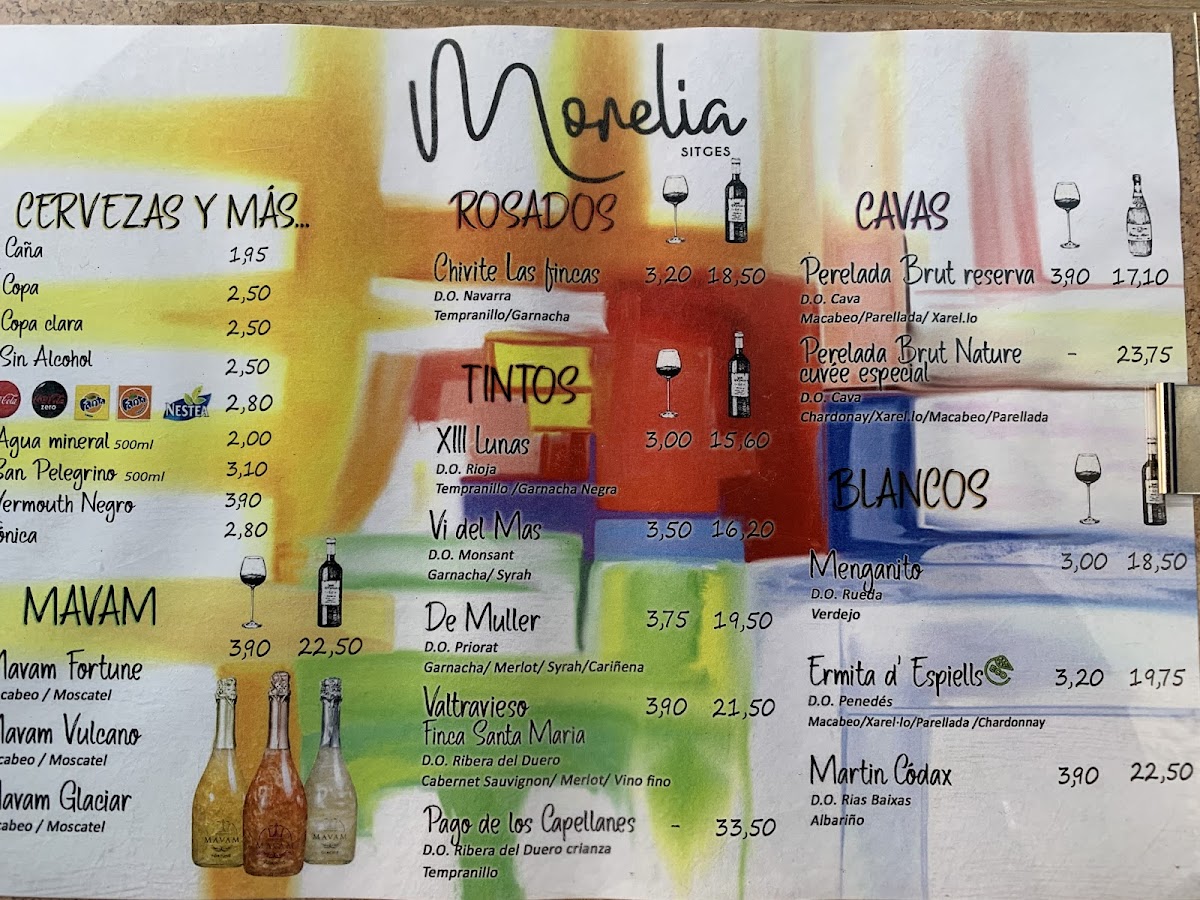 Morelia
SITGES
CERVEZAS Y MÁS...
Caña 1,95
Copa 2,50
Copa clara 2,50
Sin Alcohol 2,50
zero NESTEA 2,80
Agua mineral 500ml 2,00
San Pelegrino 500ml 3,10
Vermouth Negro 3,90
ónica 2,80
MAVAM
3,90 22,50
Mavam Fortune
cabeo / Moscatel
Mavam Vulcano
cabeo / Moscatel
Mavam Glaciar
cabeo / Moscatel
MAVAM
MAVAM
ROSADOS
Chivite Las fincas 3,20 18,50
D.O. Navarra
Tempranillo/Garnacha
TINTOS
XIII Lunas 3,00 15,60
D.O. Rioja
Tempranillo /Garnacha Negra
Vi del Mas 3,50 16,20
D.O. Monsant
Garnacha/ Syrah
De Muller 3,75 19,50
D.O. Priorat
Garnacha/ Merlot/ Syrah/Cariñena
Valtravieso 3,90 21,50
Finca Santa Maria
D.O. Ribera del Duero
Cabernet Sauvignon/ Merlot/ Vino fino
Pago de los Capellanes - 33,50
D.O. Ribera del Duero crianza
Tempranillo
CAVAS
Perelada Brut reserva 3,90 17,10
D.O. Cava
Macabeo/Parellada/ Xarel.lo
Perelada Brut Nature - 23,75
cuvée especial
D.O. Cava
Chardonay/Xarel.lo/Macabeo/Parellada
BLANCOS
Menganito 3,00 18,50
D.O. Rueda
Verdejo
Ermita d' Espiells 3,20 19,75
D.O. Penedés
Macabeo/Xarel·lo/Parellada /Chardonnay
Martin Códax 3,90 22,50
D.O. Rias Baixas
Albariño